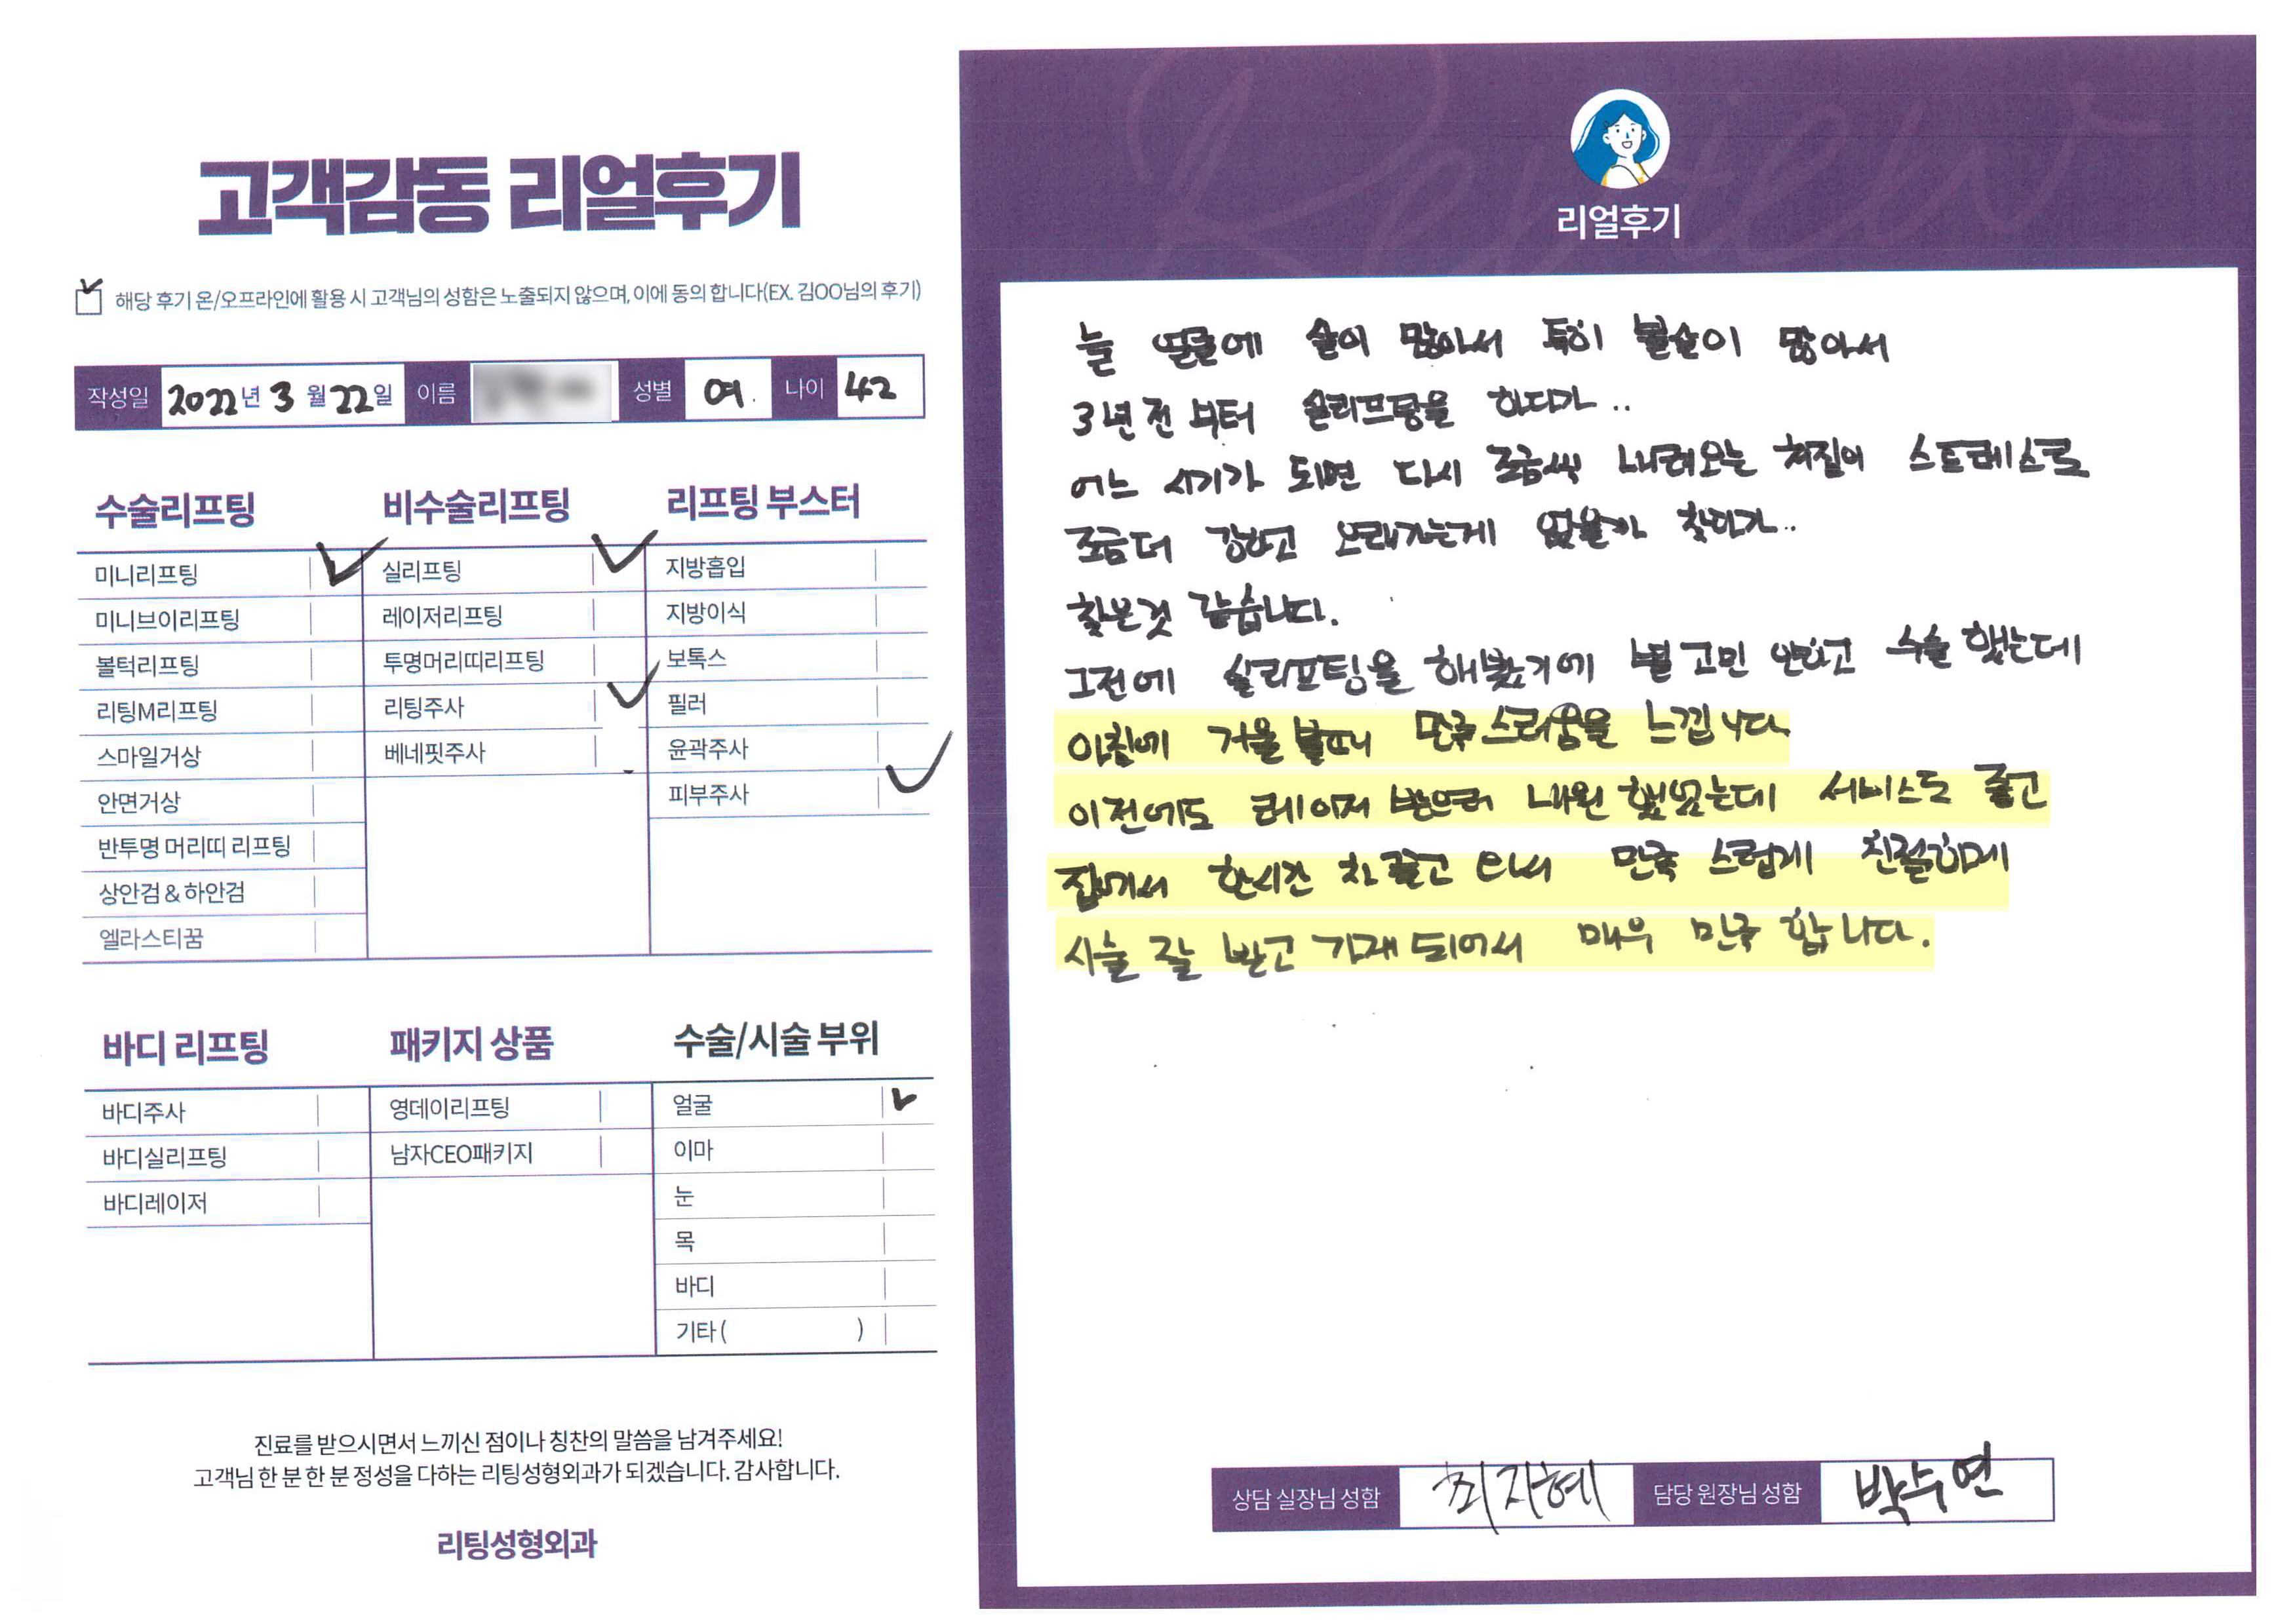 고객감동 리얼후기
해당 후기 온/오프라인에 활용 시 고객님의 성함은 노출되지 않으며, 이에 동의 합니다(EX. 김OO님의 후기)
작성일 2022년 3월 22일 이름 성별 여. 나이 42
수술리프팅
미니리프팅
미니브이리프팅
볼턱리프팅
리팅M리프팅
스마일거상
안면거상
반투명 머리띠 리프팅
상안검 & 하안검
엘라스티꿈
비수술리프팅
실리프팅
레이저리프팅
투명머리띠리프팅
리팅주사
베네핏주사
리프팅 부스터
지방흡입
지방이식
보톡스
필러
윤곽주사
피부주사
바디 리프팅
바디주사
바디실리프팅
바디레이저
패키지 상품
영데이리프팅
남자CEO패키지
수술/시술 부위
얼굴
이마
눈
목
바디
기타 ( )
진료를 받으시면서 느끼신 점이나 칭찬의 말씀을 남겨주세요!
고객님 한 분 한 분 정성을 다하는 리팅성형외과가 되겠습니다. 감사합니다.
리팅성형외과
Review
리얼후기
늘 얼굴에 살이 많아서 특히 볼살이 많아서
3년전 부터 실리프팅을 하다가..
어느 시기가 되면 다시 조금씩 내려오는 처짐이 스트레스로
조금더 강하고 오래가는게 없을까 찾다가..
찾은것 같습니다.
그전에 실리프팅을 해봤기에 별 고민 안하고 수술 했는데
아침에 거울 볼때 만족스러움을 느낍니다
이전에도 레이저 받으러 내원 했었는데 서비스도 좋고
집에서 한시간 차 끌고 와서 만족 스럽게 친절하게
시술 잘 받고 가게 되어서 매우 만족 합니다.
상담 실장님 성함 최지혜 담당 원장님 성함 박수연